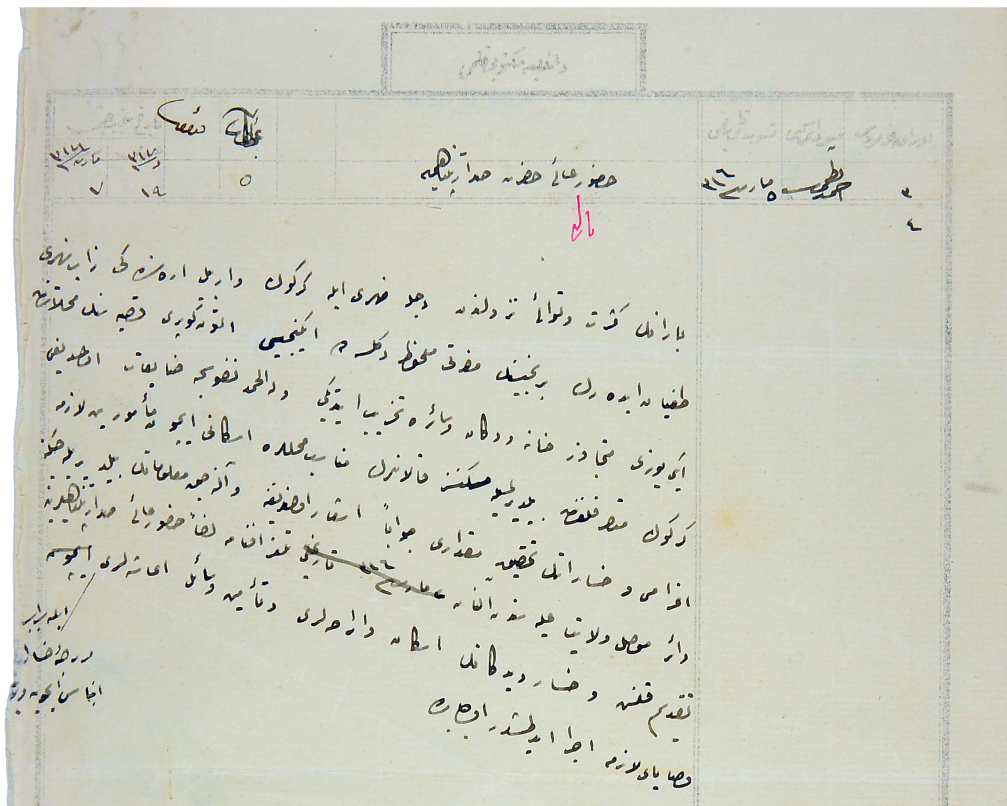 داخلیه مکتوبی قلمی
حضور عالئ حضرت صدارتپناهی‌یه
٥ مارت ٣١٦
٣
٤
٥
١٩
٧
بارانك كثرت و توالئ نزولندن دجله نهری ایله كركوك و اربیل اره‌سنده‌كی زاب نهری
طغیان ایده‌رك برنجیسنك مضرتی ملحوظ دكلسه ده ایكنجیسی التون كوپری قصبه‌سنك محلاتندن
ایكی یوزی متجاوز خانه و دكان و سائره تخریب ایتدیكی ولله الحمد نفوسجه ضایعات اولمدیغی
كركوك متصرفلغندن بیلدیرلمسیله مسكنسز قالانلرك مناسب محللرده اسكانی ایچون مأمورین لازمه
اعزامی و خساراتك تحقیق مقداری جواباً اشعار اولندیغنه و آلنه‌جق معلوماتك بیلدیریله‌جكنه
دائر موصل ولایت علیه‌سندن النان تلغرافنامه لفاً حضور عالئ صدارتپناهیلرینه
تقدیم قلنمش و خساردیدكانك اسكان و اراحه‌لری و تأمین وسائل اعاشه‌لری ایچون
وصایای لازمه اجرا ایدلمشدر اولبابده